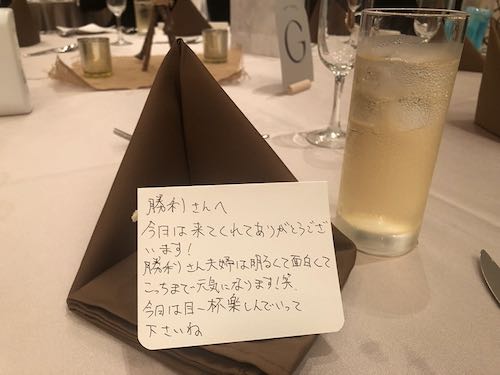 G
勝利さんへ
今日は来てくれてありがとうござ
います!
勝利さん夫婦は明るくて面白くて
こっちまで元気になります!笑
今日は目一杯楽しんでいって
下さいね